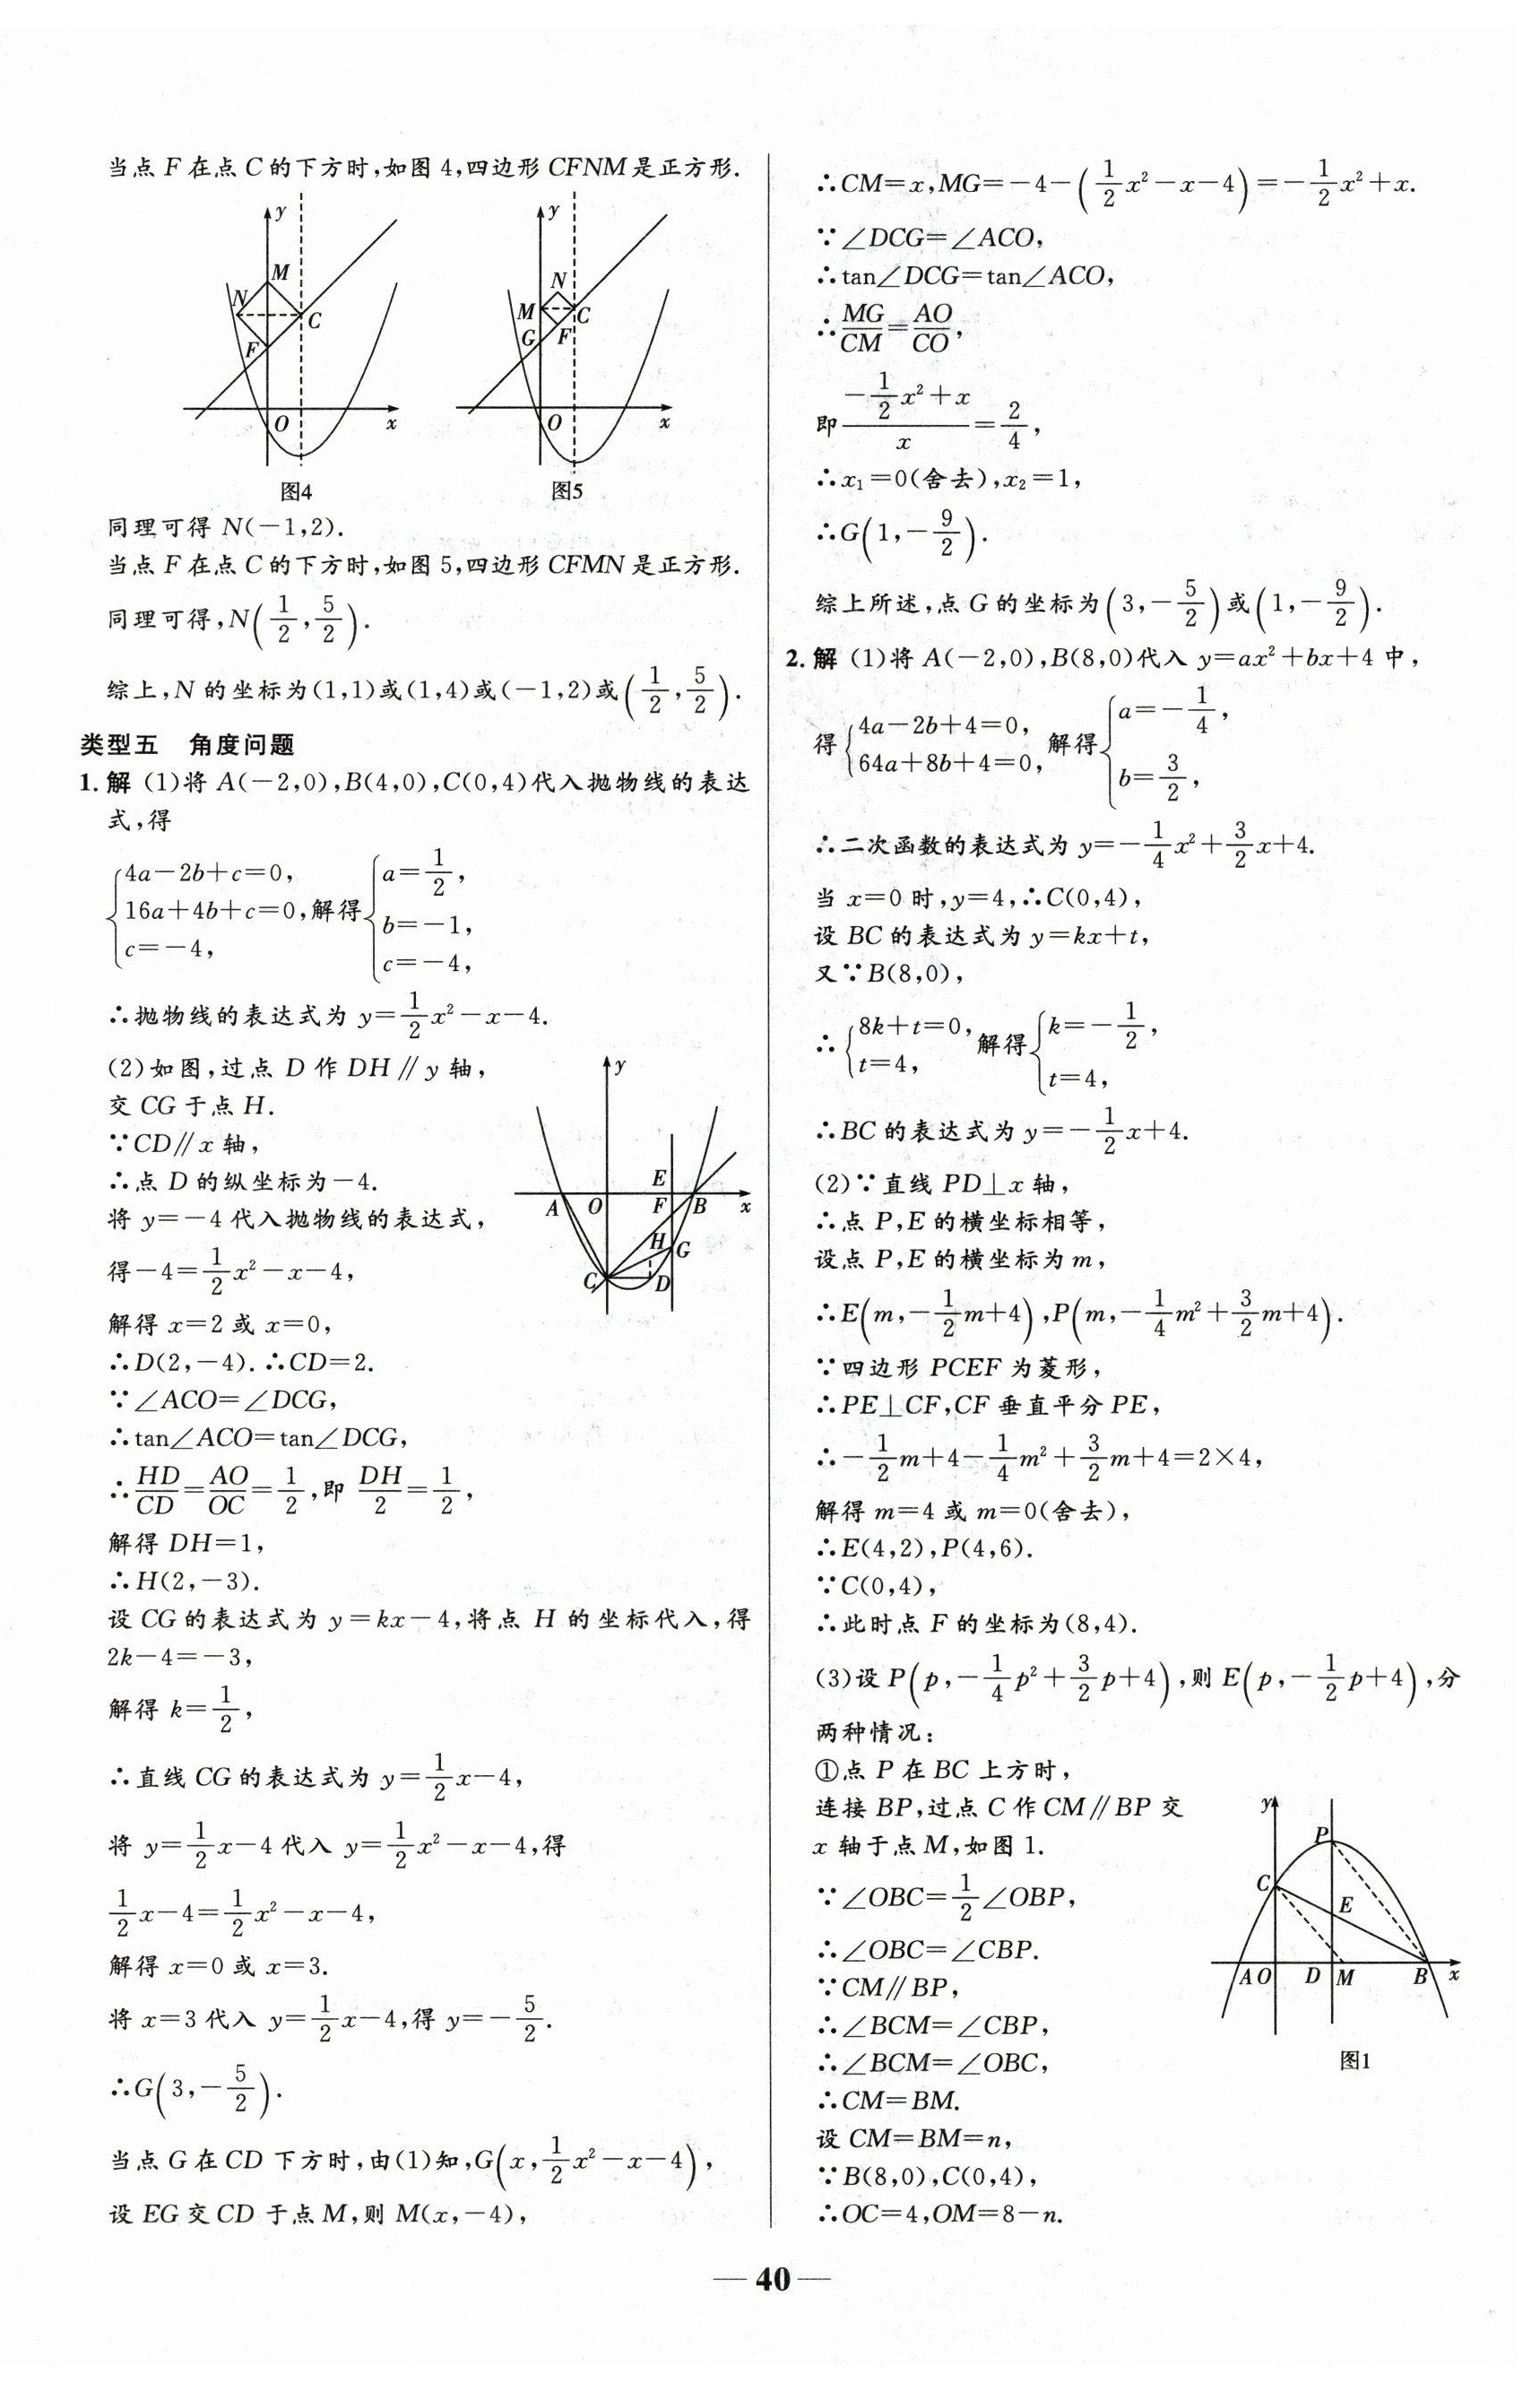 当点 F 在点 C 的下方时,如图 4,四边形 CFNM 是正方形.
y
M
N
C
F
O
x
图4
y
N
M
C
G
F
O
x
图5
同理可得 N(-1,2).
当点 F 在点 C 的下方时,如图 5,四边形 CFMN 是正方形.
同理可得,N(1/2,5/2).
综上,N 的坐标为(1,1)或(1,4)或(-1,2)或(1/2,5/2).
类型五 角度问题
1. 解 (1)将 A(-2,0),B(4,0),C(0,4)代入抛物线的表达
式,得
{4a-2b+c=0, 16a+4b+c=0, c=-4, 解得{a=1/2, b=-1, c=-4,
∴抛物线的表达式为 y=1/2x²-x-4.
(2)如图,过点 D 作 DH∥y 轴,
交 CG 于点 H.
∵CD∥x 轴,
∴点 D 的纵坐标为-4.
将 y=-4 代入抛物线的表达式,
得-4=1/2x²-x-4,
解得 x=2 或 x=0,
∴D(2,-4). ∴CD=2.
y
E
A
O
F
B
x
H
G
C
D
∵∠ACO=∠DCG,
∴tan∠ACO=tan∠DCG,
∴HD/CD=AO/OC=1/2,即 DH/2=1/2,
解得 DH=1,
∴H(2,-3).
设 CG 的表达式为 y=kx-4,将点 H 的坐标代入,得
2k-4=-3,
解得 k=1/2,
∴直线 CG 的表达式为 y=1/2x-4,
将 y=1/2x-4 代入 y=1/2x²-x-4,得
1/2x-4=1/2x²-x-4,
解得 x=0 或 x=3.
将 x=3 代入 y=1/2x-4,得 y=-5/2.
∴G(3,-5/2).
当点 G 在 CD 下方时,由(1)知,G(x,1/2x²-x-4),
设 EG 交 CD 于点 M,则 M(x,-4),
∴CM=x,MG=-4-(1/2x²-x-4)=-1/2x²+x.
∵∠DCG=∠ACO,
∴tan∠DCG=tan∠ACO,
∴MG/CM=AO/CO,
即(-1/2x²+x)/x=2/4,
∴x₁=0(舍去),x₂=1,
∴G(1,-9/2).
综上所述,点 G 的坐标为(3,-5/2)或(1,-9/2).
2. 解 (1)将 A(-2,0),B(8,0)代入 y=ax²+bx+4 中,
得{4a-2b+4=0, 64a+8b+4=0, 解得{a=-1/4, b=3/2,
∴二次函数的表达式为 y=-1/4x²+3/2x+4.
当 x=0 时,y=4,∴C(0,4),
设 BC 的表达式为 y=kx+t,
又∵B(8,0),
∴{8k+t=0, t=4, 解得{k=-1/2, t=4,
∴BC 的表达式为 y=-1/2x+4.
(2)∵直线 PD⊥x 轴,
∴点 P,E 的横坐标相等,
设点 P,E 的横坐标为 m,
∴E(m,-1/2m+4),P(m,-1/4m²+3/2m+4).
∵四边形 PCEF 为菱形,
∴PE⊥CF,CF 垂直平分 PE,
∴-1/2m+4-1/4m²+3/2m+4=2×4,
解得 m=4 或 m=0(舍去),
∴E(4,2),P(4,6).
∵C(0,4),
∴此时点 F 的坐标为(8,4).
(3)设 P(p,-1/4p²+3/2p+4),则 E(p,-1/2p+4),分
两种情况:
①点 P 在 BC 上方时,
连接 BP,过点 C 作 CM∥BP 交
x 轴于点 M,如图 1.
∵∠OBC=1/2∠OBP,
∴∠OBC=∠CBP.
∵CM∥BP,
∴∠BCM=∠CBP,
∴∠BCM=∠OBC,
∴CM=BM.
y
P
C
E
A
O
D
M
B
x
图1
设 CM=BM=n,
∵B(8,0),C(0,4),
∴OC=4,OM=8-n.
— 40 —